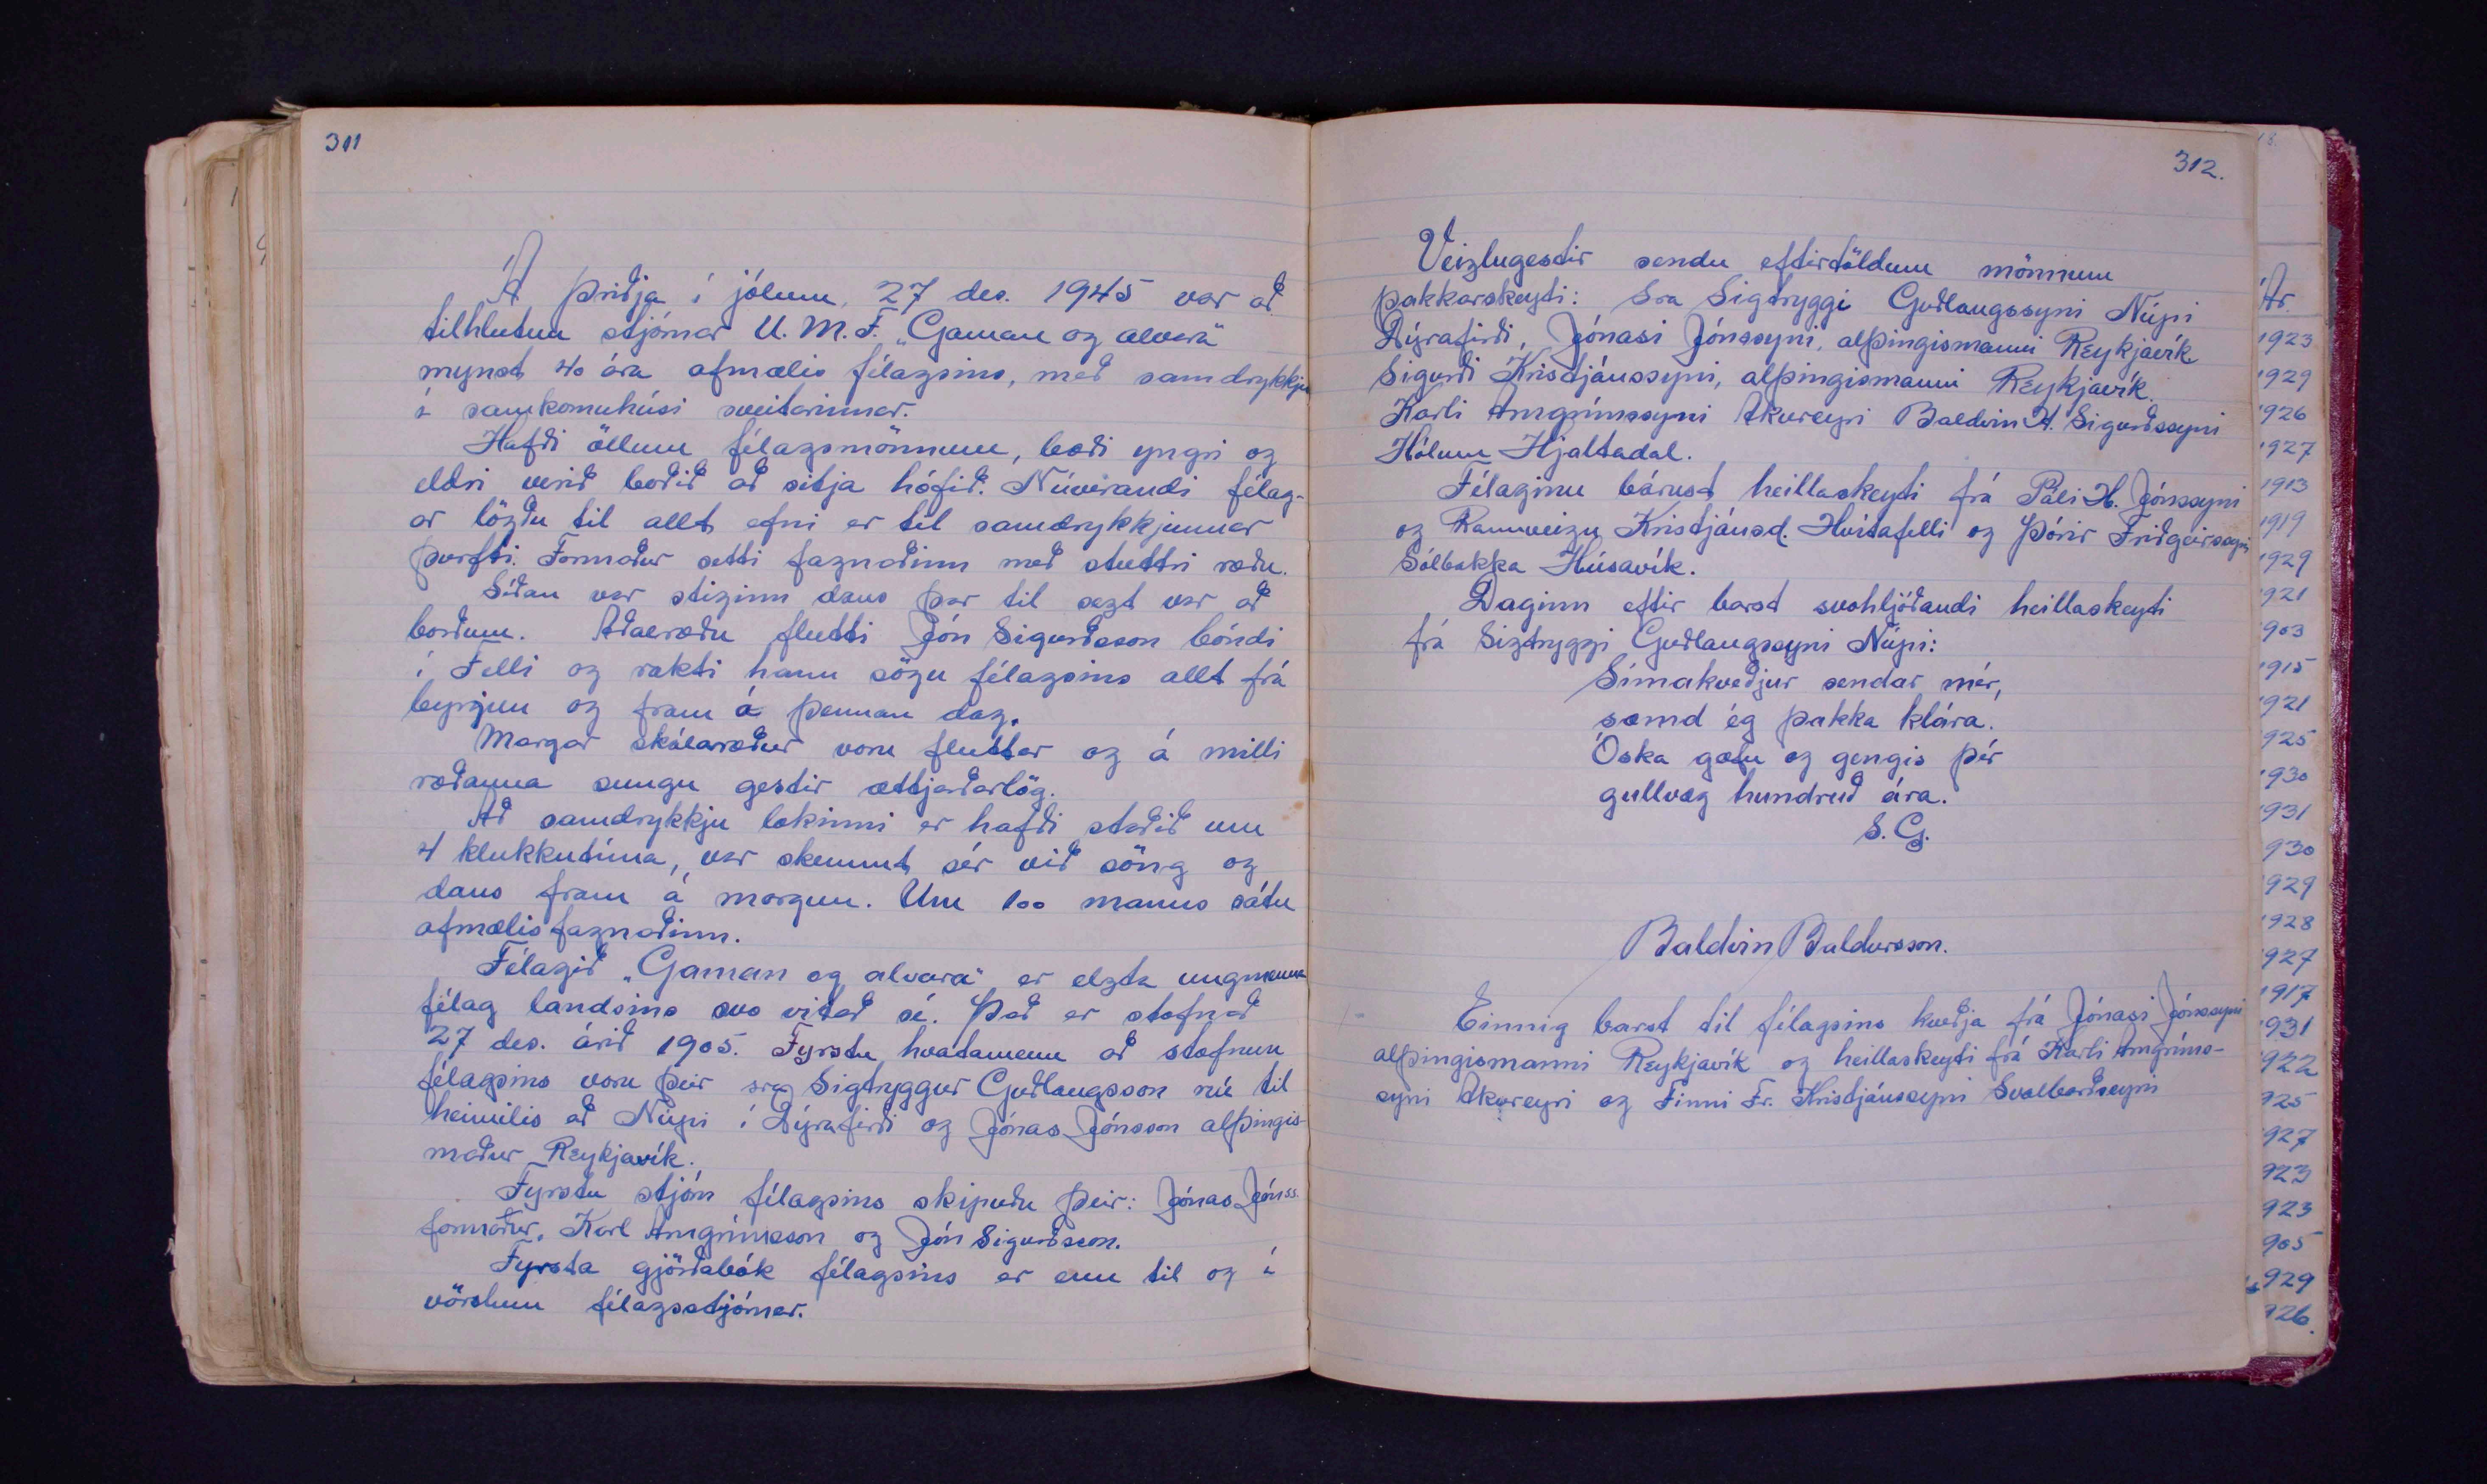 311
Á þriðja í jólum, 27 des. 1945 var að
tilhlutun stjórnar U.M.F. „Gaman og alvara"
mynst 40 ára afmælis félagsins, með samdrykkju
í samkomuhúsi sveitarinnar.
Hafði öllum félagsmönnum, bæði yngri og
eldri verið boðið að sitja hófið. Núverandi félag-
ar lögðu til allt efni er til samdrykkjunnar
þurfti. Formaður setti fagnaðinn með stuttri ræðu.
Síðan var stiginn dans þar til sezt var að
borðum. Aðalræðu flutti Jón Sigurðsson bóndi
í Felli og rakti hann sögu félagsins allt frá
byrjun og fram á þennan dag.
Margar skálaræður voru fluttar og á milli
ræðanna sungu gestir ættjarðarlög.
Að samdrykkju lokinni er hafði staðið um
4 klukkutíma, var skemmt sér við söng og
dans fram á morgun. Um 100 manns sátu
afmælisfagnaðinn.
Félagið „Gaman og alvara" er elzta ungmenna
félag landsins svo vitað sé. Það er stofnað
27 des. árið 1905. Fyrstu hvatamenn að stofnun
félagsins voru þeir sra Sigtryggur Guðlaugsson nú til
heimilis að Núpi í Dýrafirði og Jónas Jónsson alþingis-
maður Reykjavík.
Fyrstu stjórn félagsins skipuðu þeir: Jónas Jónss.
formaður, Karl Arngrímsson og Jón Sigurðsson.
Fyrsta gjörðabók félagsins er enn til og í
vörslum félagsstjórnar.
312.
Veizlugestir sendu eftirtöldum mönnum
þakkarskeyti: Sra Sigtryggi Guðlaugssyni Núpi
Dýrafirði, Jónasi Jónssyni, alþingismanni Reykjavík
Sigurði Kristjánssyni, alþingismanni Reykjavík.
Karli Arngrímssyni Akureyri Baldvin A. Sigurðssyni
Hólum Hjaltadal.
Félaginu bárust heillaskeyti frá Páli H. Jónssyni
og Rannveigu Kristjánsd. Hvítafelli og Þórir Friðgeirssyni
Sólbakka Húsavík.
Daginn eftir barst svohljóðandi heillaskeyti
frá Sigtryggi Guðlaugssyni Núpi:
Símakveðjur sendar mér,
sæmd ég þakka klára.
Óska gæfu og gengis þér
gullvæg hundruð ára.
S.G.
Baldvin Baldursson.
Einnig barst til félagsins kveðja frá Jónasi Jónssyni
alþingismanni Reykjavík og heillaskeyti frá Karli Arngríms-
syni Akureyri og Finni Fr. Kristjánssyni Svalbarðseyri
Ár.
1923
1929
1926
1927
1913
1919
1929
1921
903
1915
1921
925
1930
1931
930
929
1928
1927
1917
931
922
925
927
923
923
905
929
926.